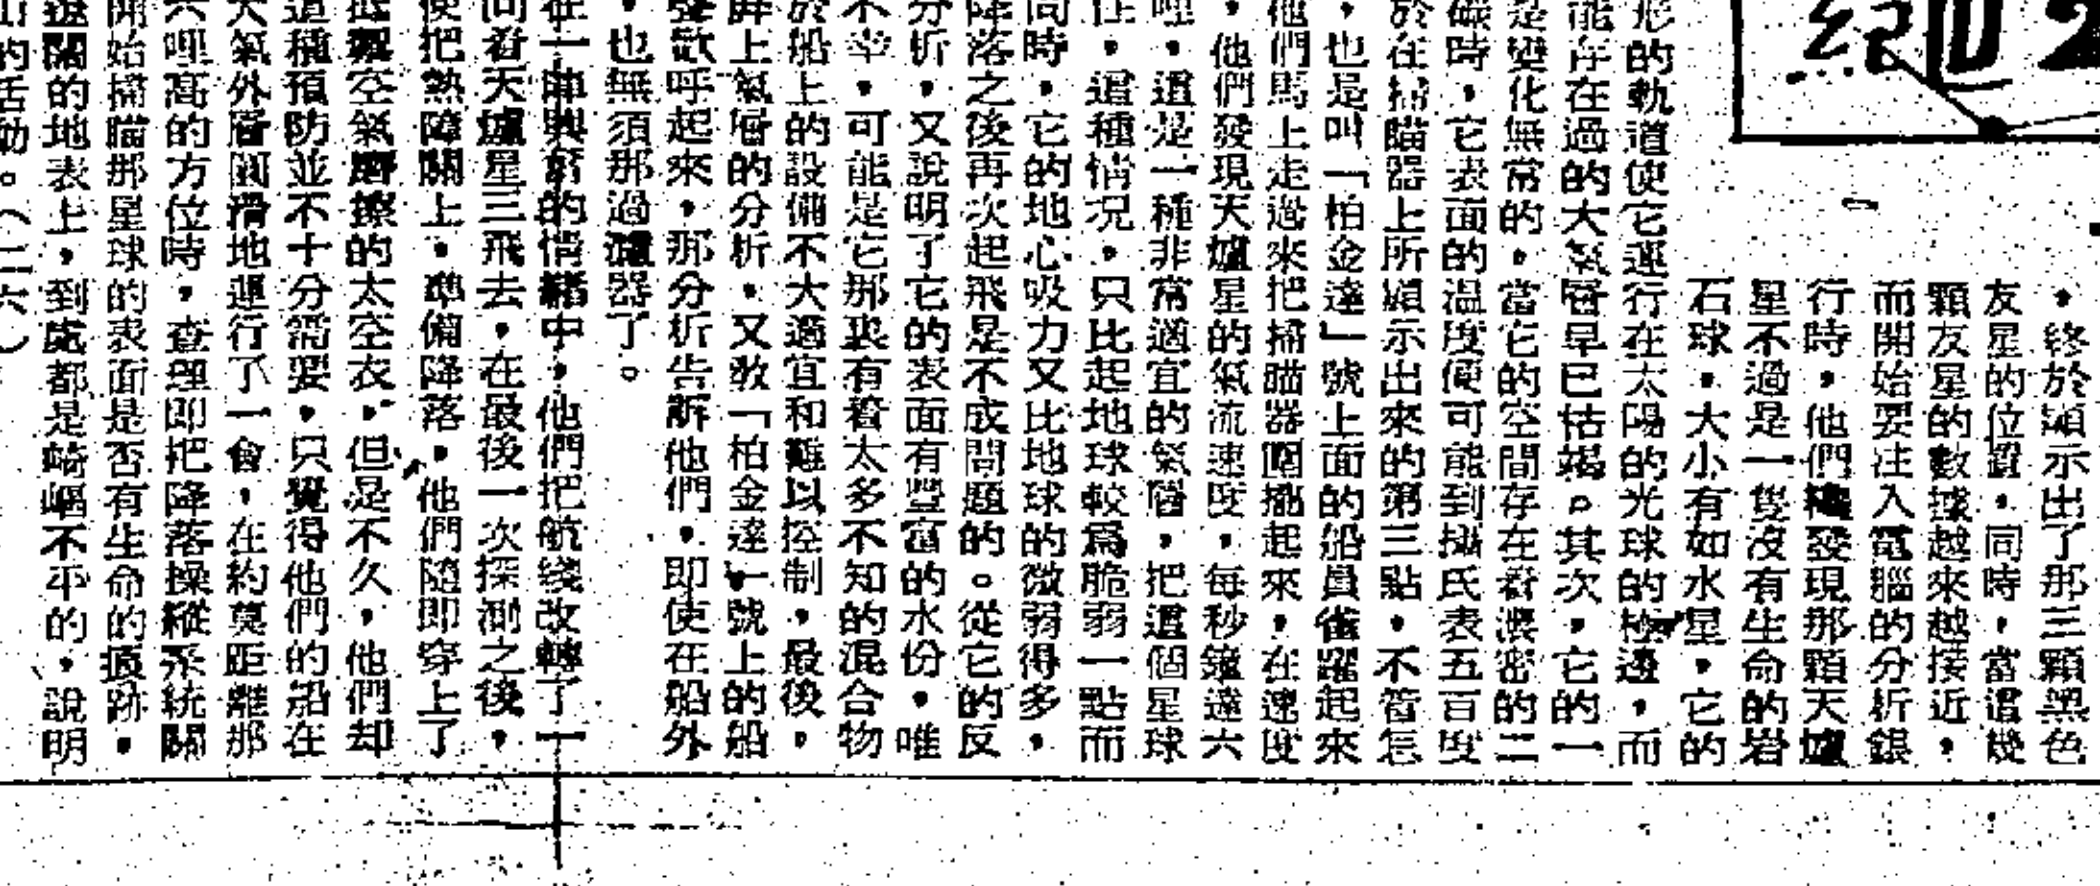 紀
，終於顯示出了那三顆黑色
友星的位置，同時，當這幾
顆友星的數據越來越接近，
而開始要注入電腦的分析銀
行時，他們纔發現那顆天爐
星不過是一隻沒有生命的岩
石球，大小有如水星，它的
形的軌道使它運行在太陽的光球的極邊，而
能存在過的大氣層早已枯竭。其次，它的一
是變化無常的，當它的空間存在着濃密的二
碳時，它表面的溫度便可能到攝氏表五百度
於在掃瞄器上所顯示出來的第三點，不管怎
，也是叫「柏金達」號上面的船員雀躍起來
他們馬上走過來把掃瞄器圍攏起來，在速度
，他們發現天爐星的氣流速度，每秒鐘達六
哩，這是一種非常適宜的氣層，把這個星球
住，這種情况，只比起地球較爲脆弱一點而
同時，它的地心吸力又比地球的微弱得多，
降落之後再次起飛是不成問題的。從它的反
分析，又說明了它的表面有豐富的水份，唯
不幸，可能是它那裏有着太多不知的混合物
於船上的設備不大適宜和難以控制，最後，
屛上氣層的分析，又敎「柏金達」號上的船
聲歡呼起來，那分析告訴他們，即使在船外
，也無須那過濾器了。
在一陣興奮的情緖中，他們把航綫改轉了一
向着天爐星三飛去，在最後一次探測之後，
便把熱障關上，準備降落，他們隨即穿上了
抵禦空氣磨擦的太空衣，但是不久，他們却
這種預防並不十分需要，只覺得他們的船在
大氣外層圓滑地運行了一會，在約莫距離那
六哩高的方位時，查理即把降落操縱系統關
開始掃瞄那星球的表面是否有生命的痕跡，
遼闊的地表上，到處都是崎嶇不平的，說明
山的活動。（二六）